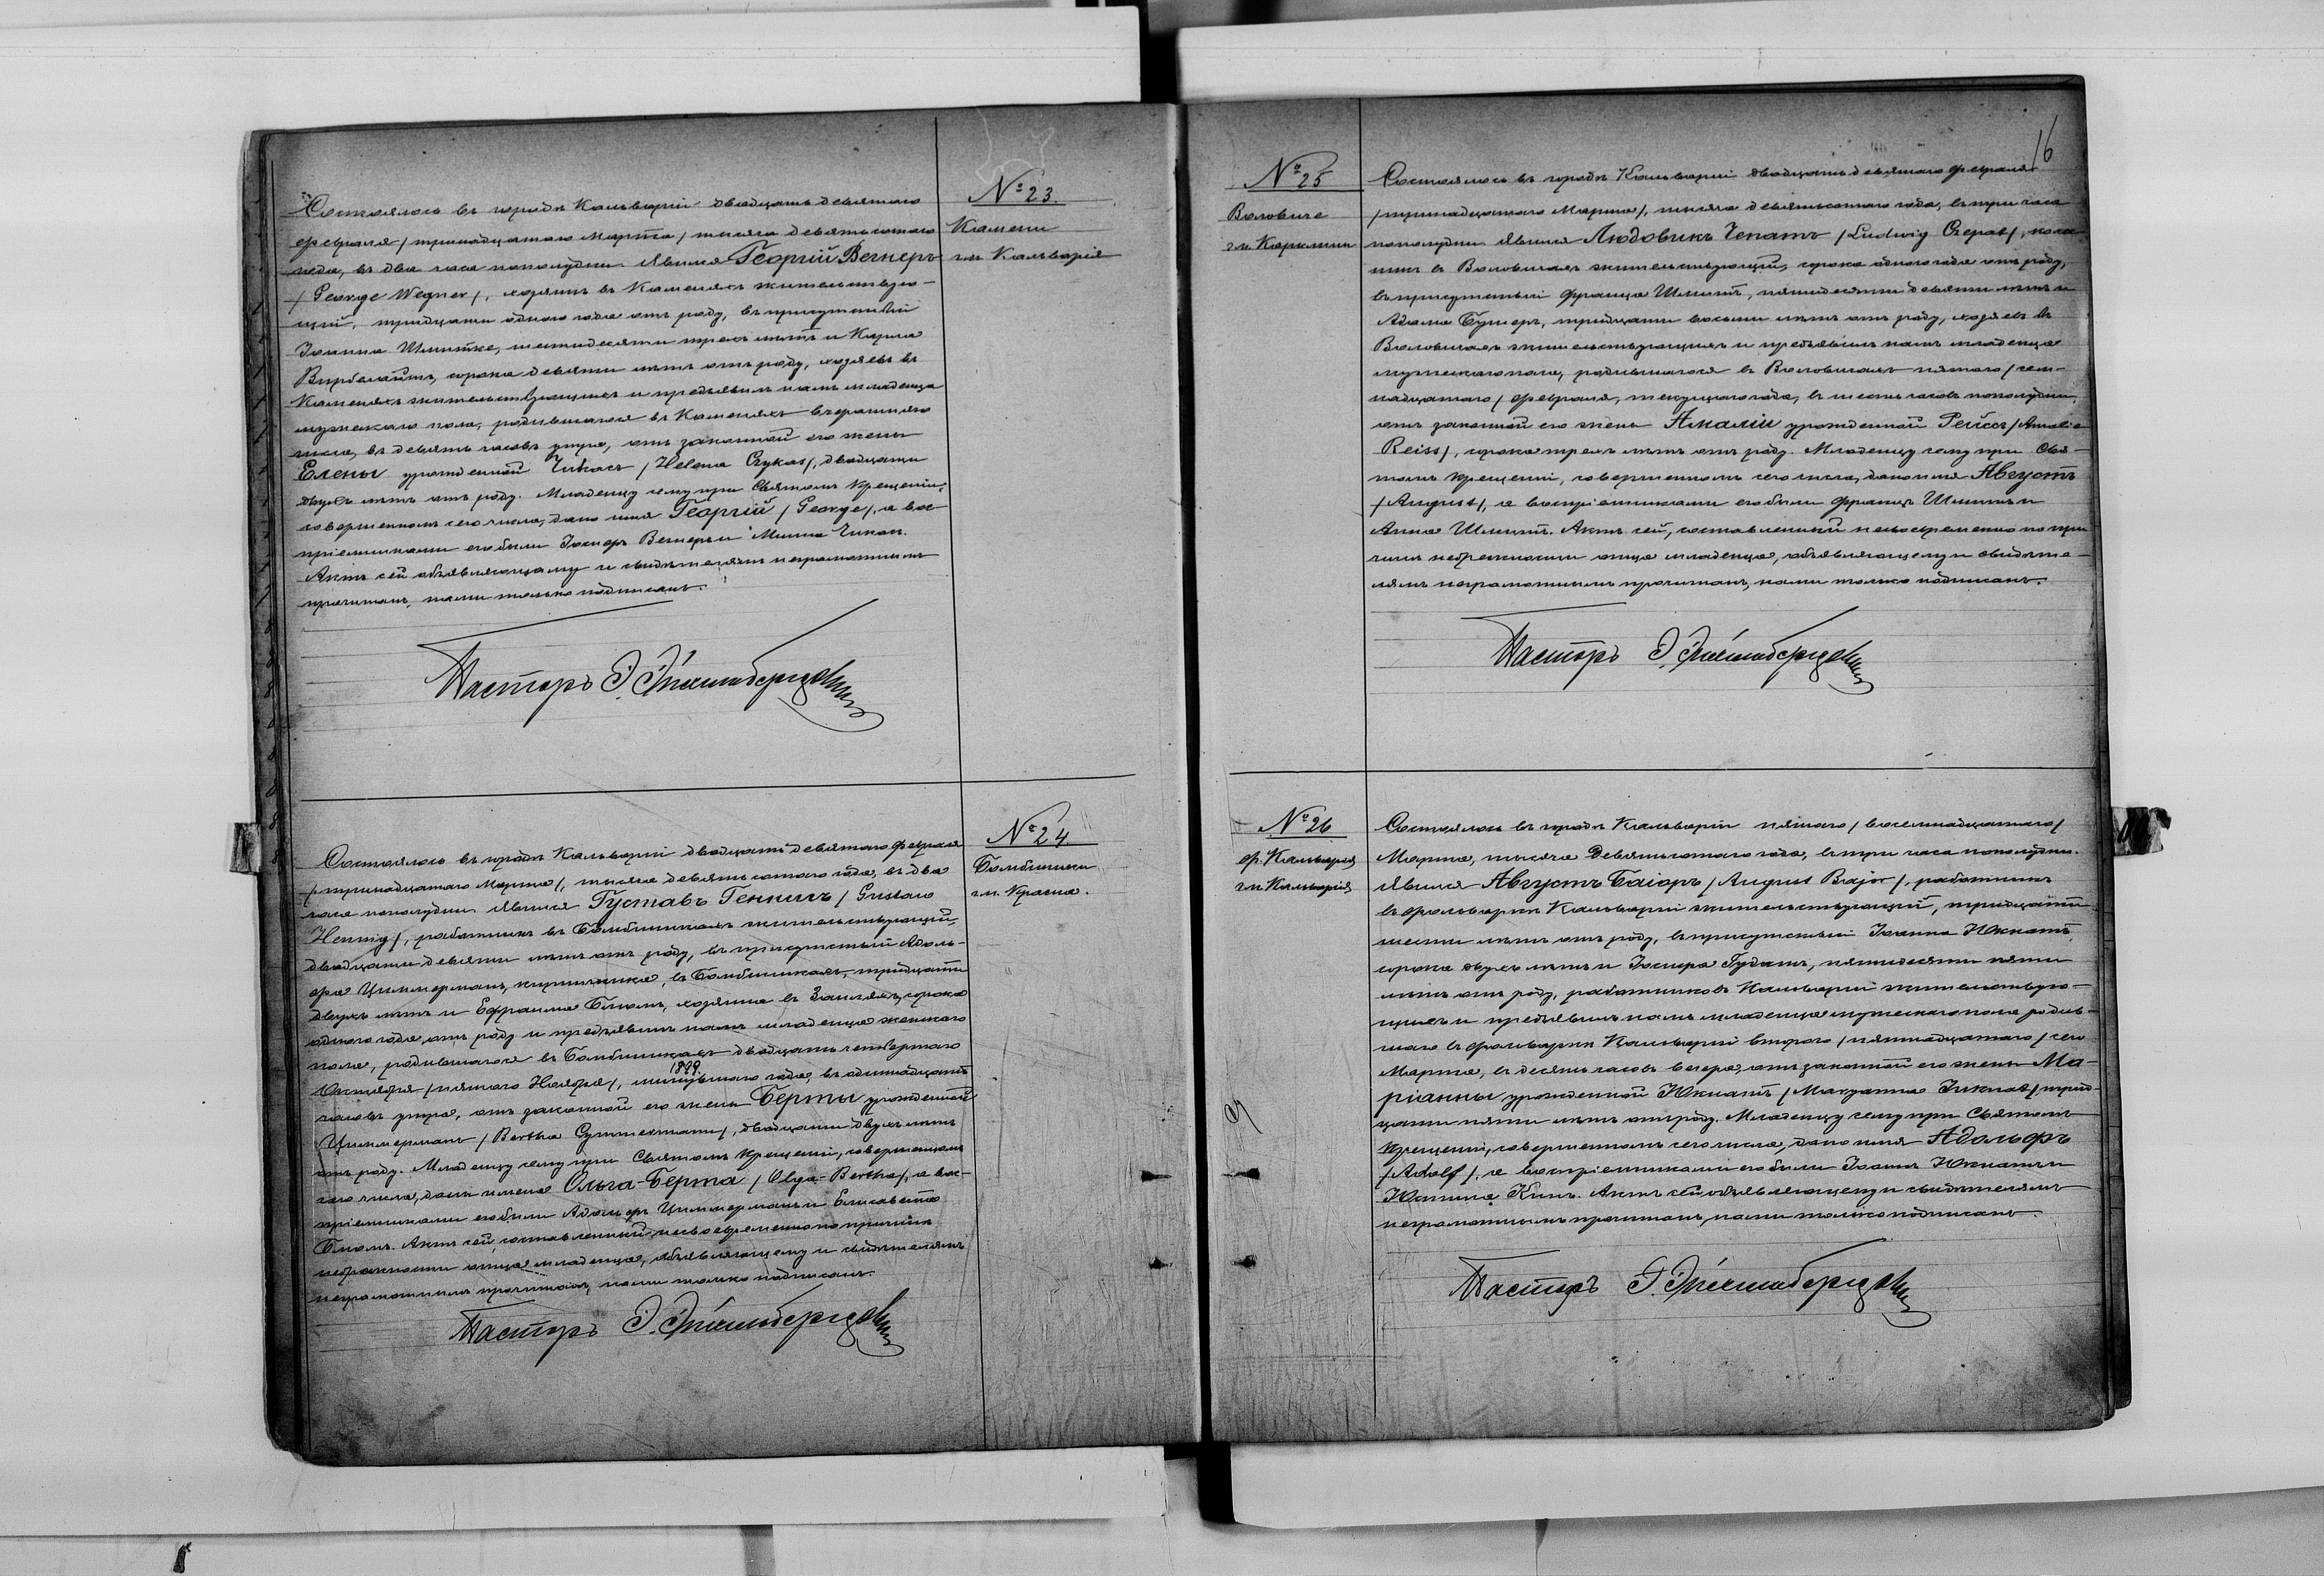 № 23.
Камени
гм. Кальварія
Состоялось въ городѣ Кальваріи двадцать девятаго
февраля /тринадцатаго Марта/ тысяча девятьсотаго
года, въ два часа пополудни. Явился Георгій Вегнеръ
/George Wegner/, хозяинъ въ Каменяхъ жительствую-
щій, тридцати одного года отъ роду, въ присутствіи
Іоанна Шмитке, шестидесяти трехъ лѣтъ и Карла
Вирбелайтъ, сорока девяти лѣтъ отъ роду, хозяевъ въ
Каменяхъ жительствующихъ и предъявилъ намъ младенца
мужескаго пола, родившагося въ Каменяхъ вчерашняго
числа, въ девять часовъ утра, отъ законной его жены
Елены урожденной Чикасъ /Helena Czykas/, двадцати
двухъ лѣтъ отъ роду. Младенцу сему при Святомъ Крещеніи,
совершенномъ сего числа, дано имя Георгій /George/, а вос-
пріемниками его были Іосифъ Вегнеръ и Минна Чикас.
Актъ сей объявляющему и свидѣтелямъ неграмотнымъ
прочитанъ, нами только подписанъ.
Пасторъ
№ 24.
Бомблишки
гм. Красна.
Состоялось въ городѣ Кальваріи двадцать девятаго февраля
/тринадцатаго Марта/, тысяча девятьсотаго года, въ два
часа пополудни. Явился Густавъ Геннигъ /Gustaw
Hennig/, работникъ въ Бомблишкахъ жительствующій,
двадцати девяти лѣтъ отъ роду, въ присутствіи Адоль-
фа Циммерманъ, кирпичника, въ Бомблишкахъ, тридцати
двухъ лѣтъ и Ефраима Блюмъ, хозяина въ сорока
одного года отъ роду и предъявилъ намъ младенца женскаго
пола, родившагося въ Бомблишкахъ двадцать четвертаго
Октября /пятаго Ноября/, минувшаго 1899 года, въ одиннадцать
часовъ утра, отъ законной его жены Берты урожденной
Циммерманъ /Bertha Cymmermann/, двадцати двухъ лѣтъ
отъ роду. Младенцу сему при Святомъ Крещеніи, совершенномъ
сего числа, даны имена Ольга-Берта /Olga-Bertha/, а вос-
пріемниками его были Адольфъ Циммерманъ и Елисавета
Блюмъ. Актъ сей, составленный несвоевременно по причинѣ
небрежности отца младенца, объявляющему и свидѣтелямъ
неграмотнымъ прочитанъ, нами только подписанъ.
Пасторъ
16
№ 25
Воловиче
гм. Карклины
Состоялось въ городѣ Кальваріи двадцать девятаго февраля
/тринадцатаго Марта/, тысяча девятьсотаго года, въ три часа
пополудни. Явился Людовикъ Чепатъ /Ludwig Czepat/, коло-
нистъ въ Воловичахъ жительствующій, сорока одного года отъ роду,
въ присутствіи Франца Шмитъ, пятидесяти девяти лѣтъ и
Адама тридцати восьми лѣтъ отъ роду, хозяевъ въ
Воловичахъ жительствующихъ и предъявилъ намъ младенца
мужескаго пола, родившагося въ Воловичахъ пятаго /сем-
надцатаго/ февраля, текущаго года, въ шесть часовъ пополудни,
отъ законной его жены Амаліи урожденной Рейссъ /Amalie
Reiss/, сорока трехъ лѣтъ отъ роду. Младенцу сему при Свя-
томъ Крещеніи, совершенномъ сего числа, дано имя Августъ
/August/, а воспріемниками его были Францъ Шмитъ и
Анна Шмитъ. Актъ сей, составленный несвоевременно по при-
чинѣ небрежности отца младенца, объявляющему и свидѣте-
лямъ неграмотнымъ прочитанъ, нами только подписанъ.
Пасторъ
№ 26
ф. Кальварія
гм. Кальварія
Состоялось въ городѣ Кальваріи пятаго /восемнадцатаго/
Марта, тысяча девятьсотаго года, въ три часа пополудни.
Явился Августъ Баіоръ /August Bajor/, работникъ
въ фольваркѣ Кальваріи жительствующій, тридцати
шести лѣтъ отъ роду, въ присутствіи Іоанна Юкнатъ,
сорока двухъ лѣтъ и Іосифа Гудатъ, пятидесяти пяти
лѣтъ отъ роду, работниковъ Кальваріи жительствую-
щихъ и предъявилъ намъ младенца мужескаго пола родив-
шаго въ фольваркѣ Кальваріи втораго /пятнадцатаго/ сего
Марта, въ десять часовъ вечера, отъ законной его жены Ма-
ріанны урожденной Юкнатъ /Maryanna Juknat/, трид-
цати пяти лѣтъ отъ роду. Младенцу сему при Святомъ
Крещеніи, совершенномъ сего числа, дано имя Адольфъ
/Adolf/, а воспріемниками его были Іоаннъ Юкнатъ и
Юстина Актъ сей объявляющему и свидѣтелямъ
неграмотнымъ прочитанъ, нами только подписанъ.
Пасторъ